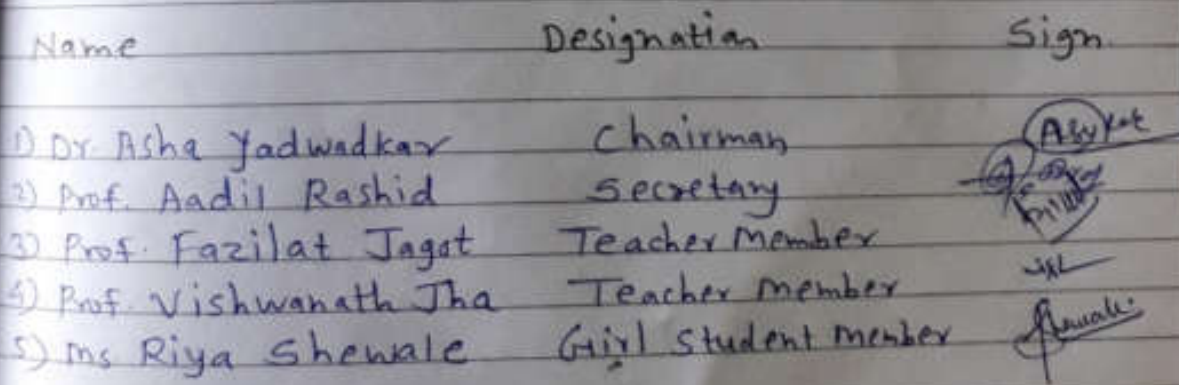 Name Designation Sign.
1) Dr. Asha Yadwadkar Chairman
2) Prof. Aadil Rashid Secretary
3) Prof. Fazilat Jagot Teacher Member
4) Prof. Vishwanath Jha Teacher member
5) Ms Riya Shewale Girl Student member